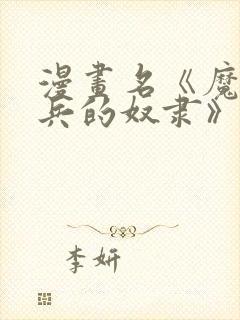 漫畫名《魔
兵的奴隶》
李妍